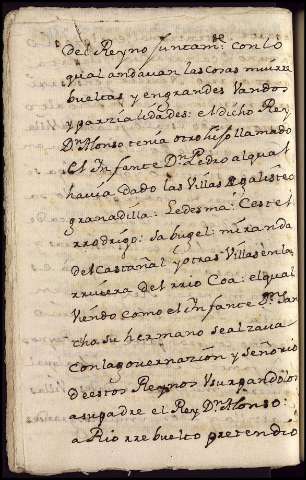 del Reyno juntam.te con lo
qual andavan las cosas mui rre
bueltas y en grandes Vandos
y parzialidades: el dicho Rey
D.n Alonso tenia otro hijo llamado
el Infante D.n Pedro al qual
havia dado las Villas de galisteo
granadilla: Ledesma: Castel
rrodrigo: sabugel: miranda
del Castañal y otras Villas en la
rriviera del rrio Coa: el qual
viendo como el Infante D.n San
cho su hermano se alzava
con la governazion y señorio
de estos Reynos Usurpandolos
a su padre el Rey D.n Alonso:
a Rio rrebuelto pretendio